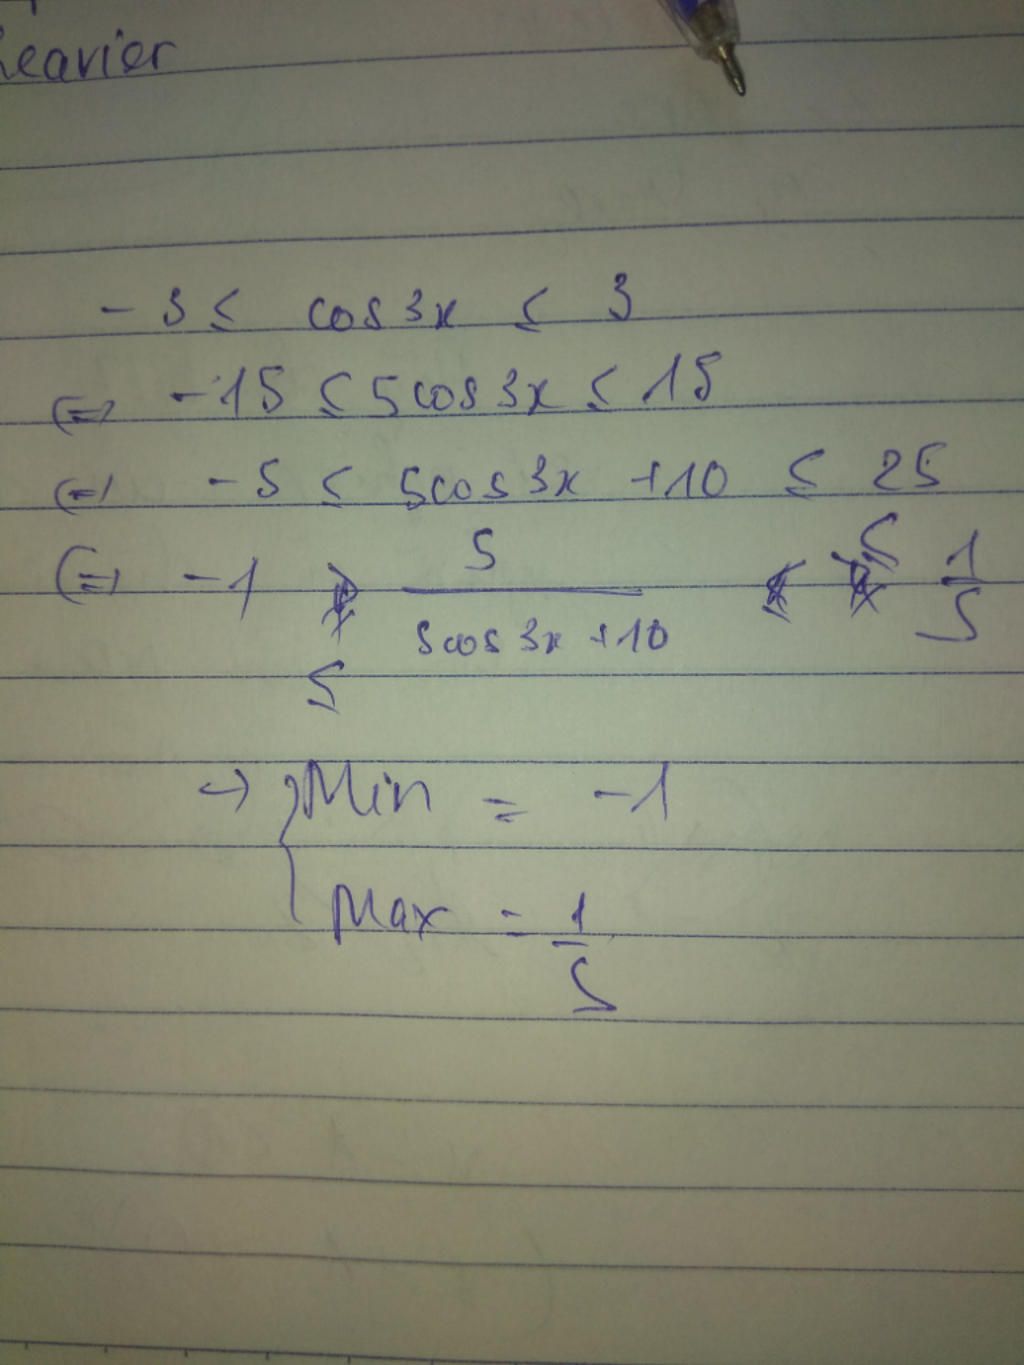 - 3 ≤ cos 3x ≤ 3
(=) -15 ≤ 5cos 3x ≤ 15
(=) -5 ≤ 5cos 3x +10 ≤ 25
(=) -1 ≤ 5 / (5cos 3x +10) ≤ 1/5
→ { Min = -1
Max = 1/5